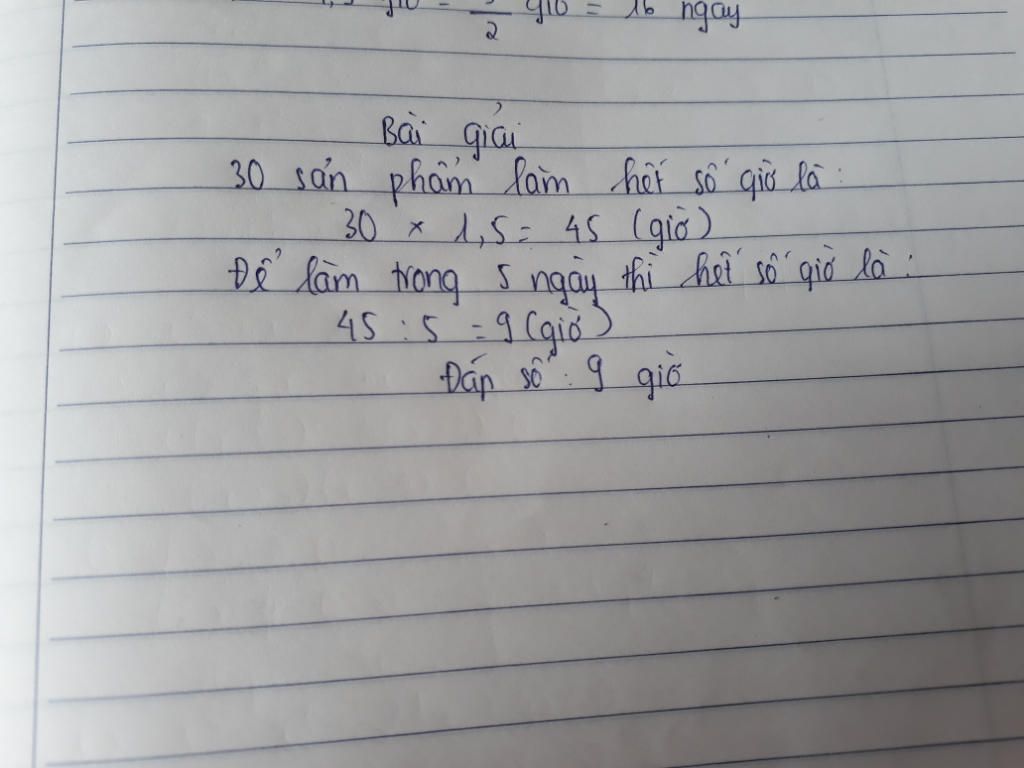 giờ = 3/2 giờ = 16 ngày
Bài giải
30 sản phẩm làm hết số giờ là:
30 × 1,5 = 45 (giờ)
Để làm trong 5 ngày thì hết số giờ là:
45 : 5 = 9 (giờ)
Đáp số: 9 giờ